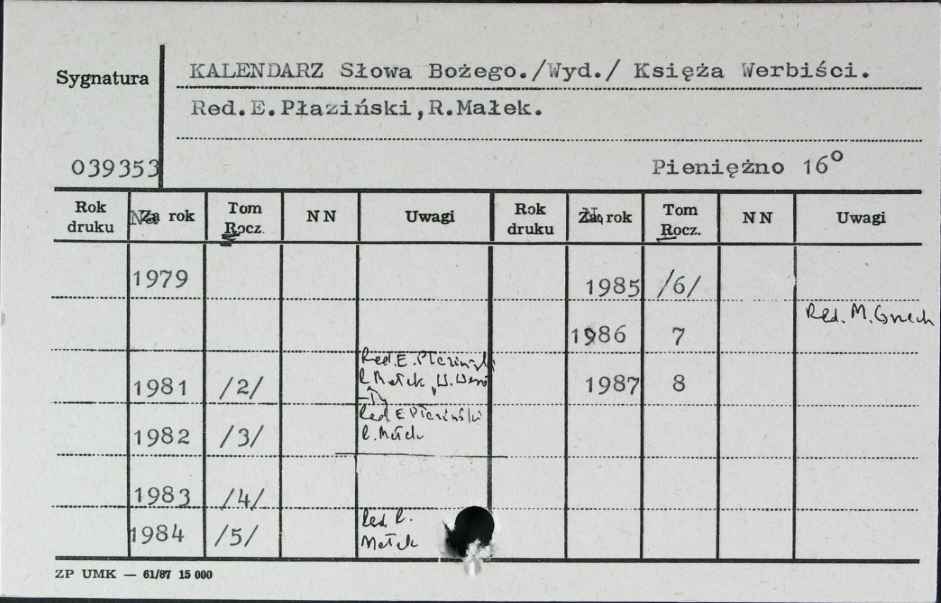 KALENDARZ Słowa Bożego./Wyd./ Księża Werbiści.
Sygnatura
Red.E.Płaziński,R.Małek.
039353
Pieniężno 16°
Rok druku Za rok Tom Rocz. NN Uwagi Rok druku Za rok Tom Rocz. NN Uwagi
1979
1985 /6/
Red. M. 
1986 7
Red. E. Płaziński
1981 /2/ R Małek, W.
1987 8
Red E Płaziński
1982 /3/ R. Małek
1983 /4/
Red R.
1984 /5/ Małek
ZP UMK — 61/87 15 000